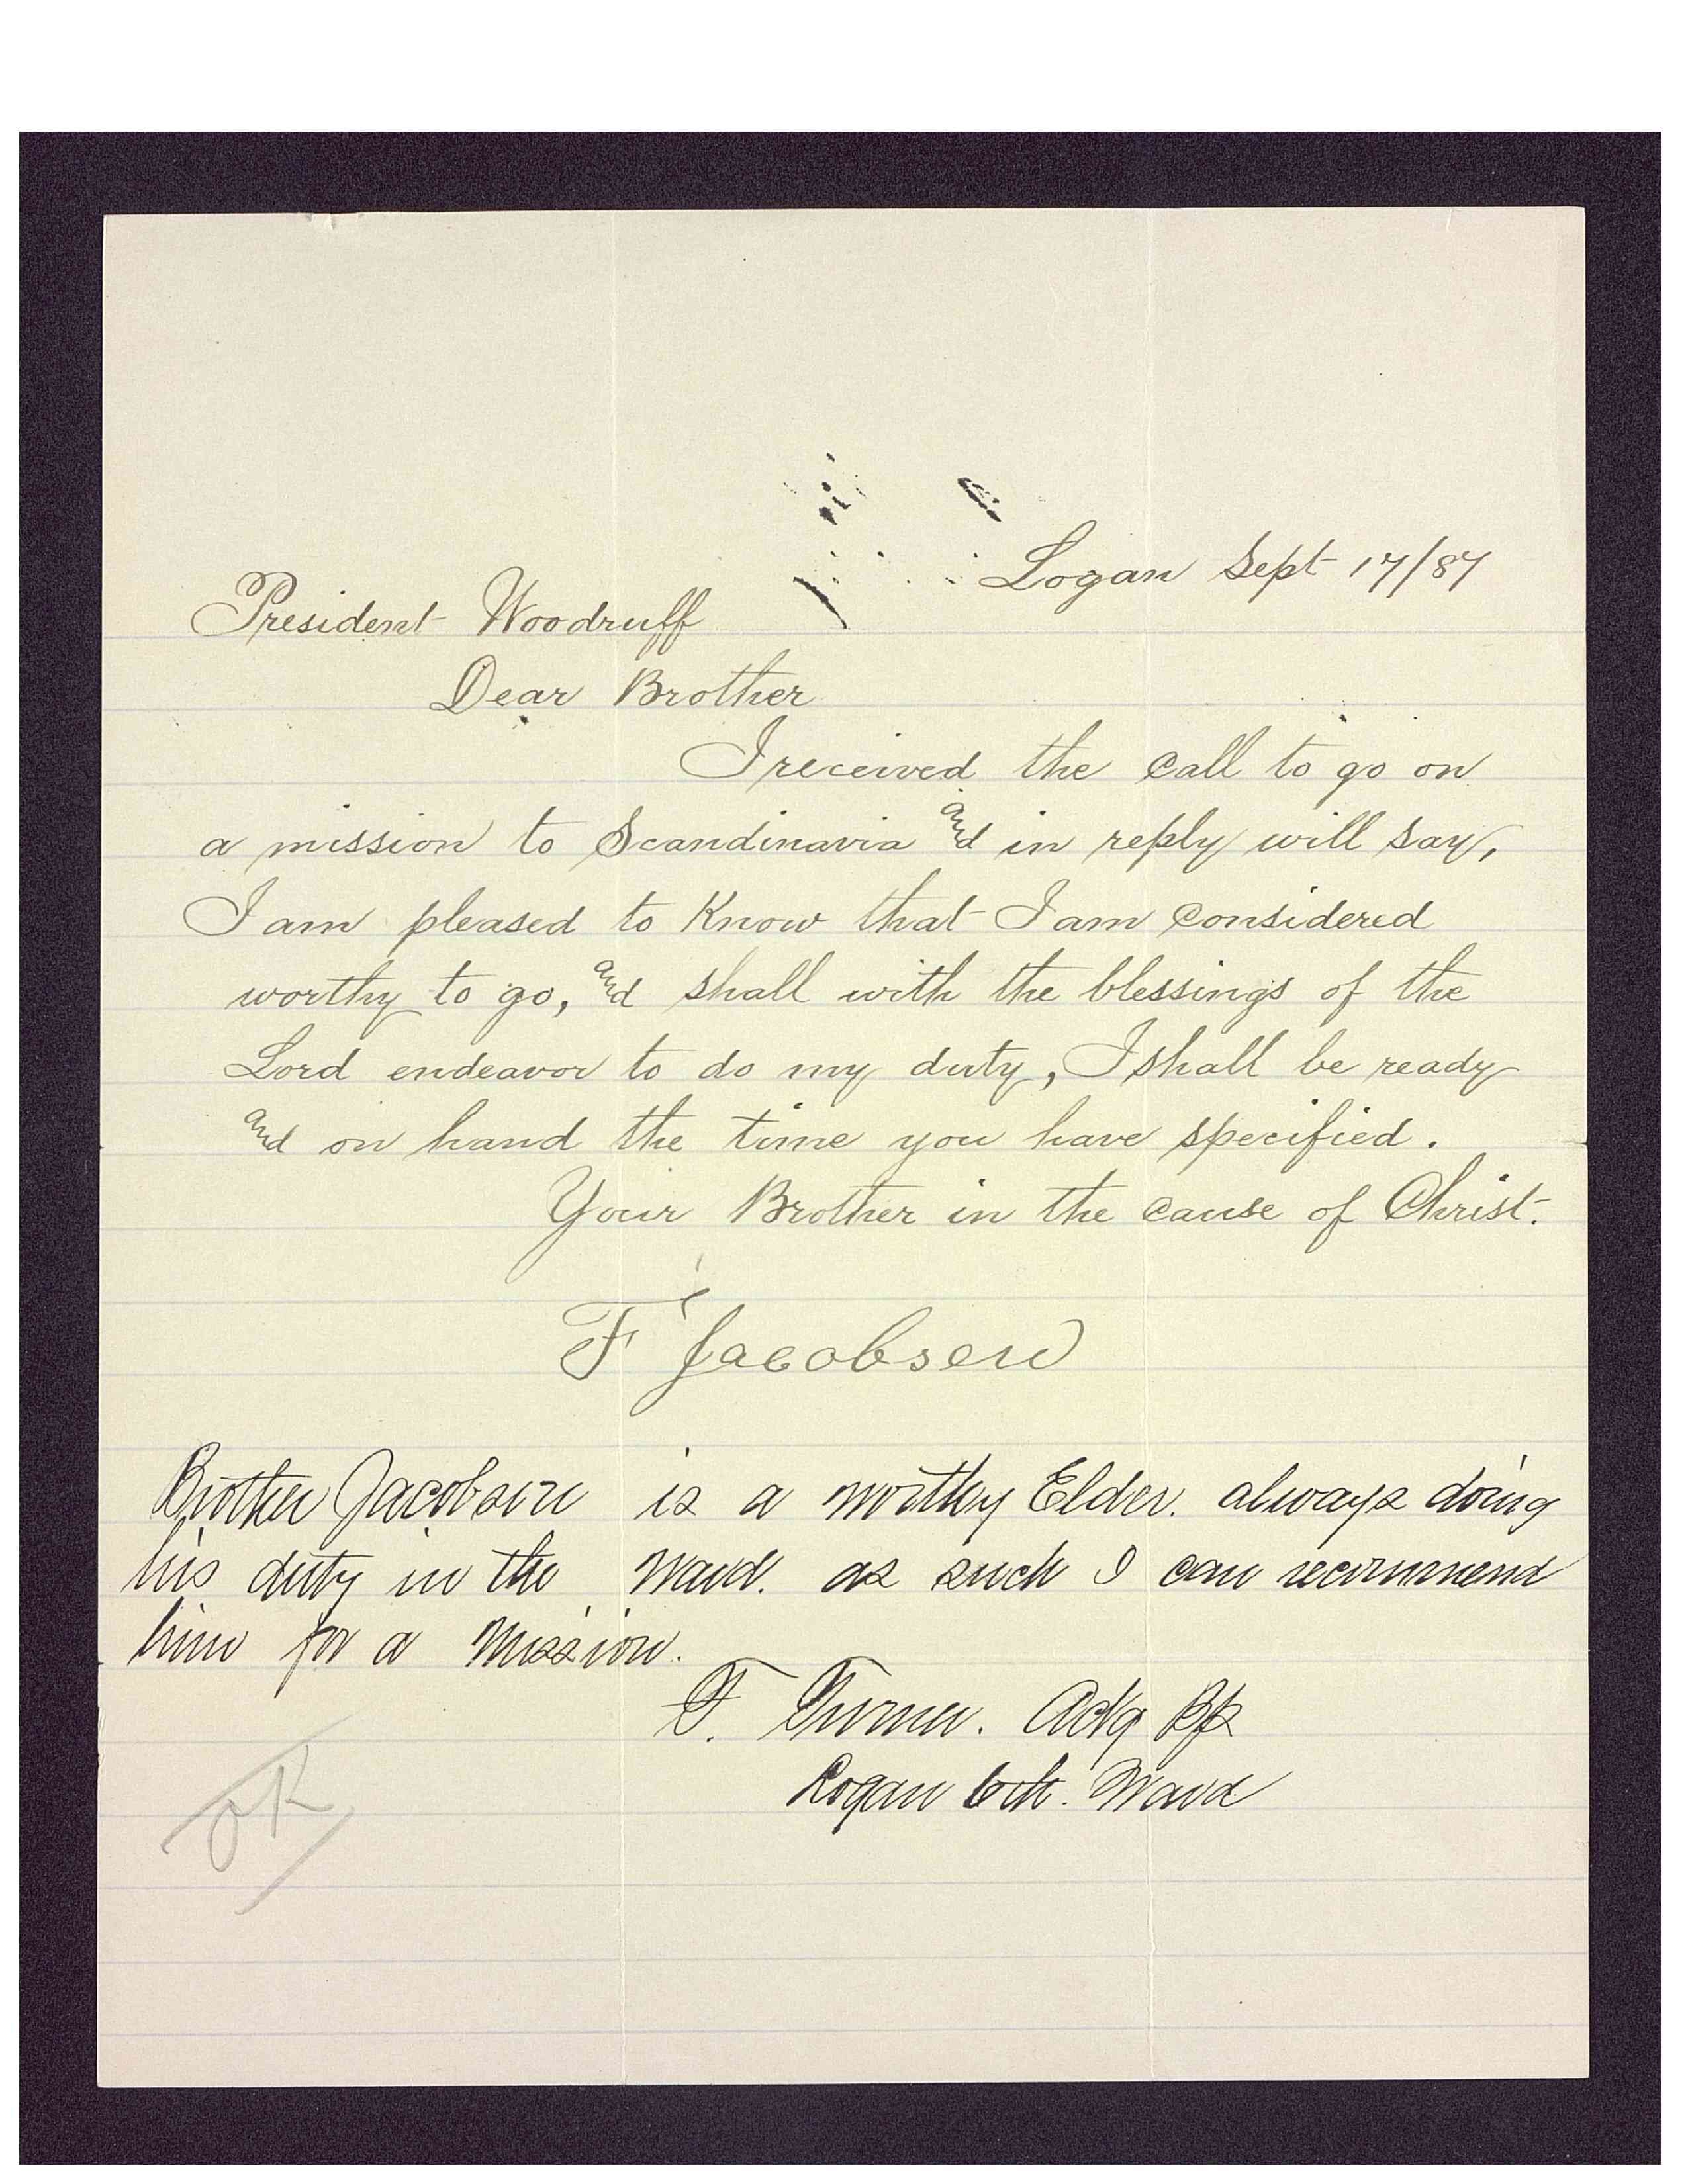 Logan Sept 17/87
President Woodruff
Dear Brother
I received the call to go on
a mission to Scandinavia and in reply will say,
I am pleased to Know that I am Considered
worthy to go, and shall with the blessings of the
Lord endeavor to do my duty, I shall be ready
and on hand the time you have specified.
Your Brother in the Cause of Christ.
F Jacobsen
Brother Jacobsen is a worthy Elder. always doing
his duty in the Ward. as such I can recommend
him for a Mission.
T. Turner. Actg Bp
Logan 6th. Ward
OK